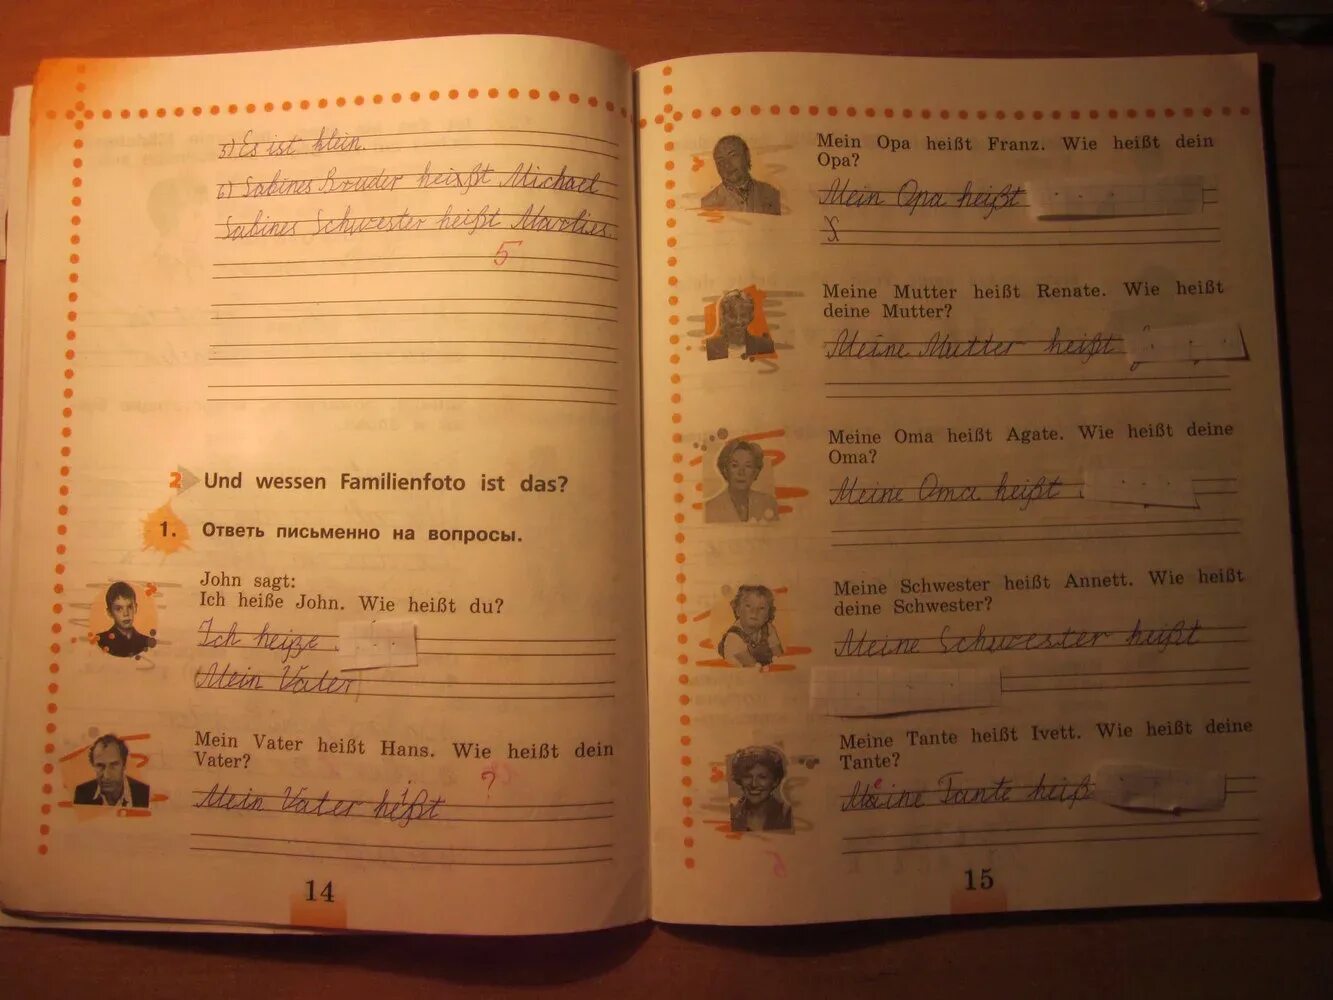 5) Es ist klein.
6) Sabines Bruder heißt Michael
Sabines Schwester heißt Marlies.
5
2 Und wessen Familienfoto ist das?
1. Ответь письменно на вопросы.
John sagt:
Ich heiße John. Wie heißt du?
Ich heiße
Mein Vater
Mein Vater heißt Hans. Wie heißt dein
Vater?
?
Mein Vater heißt
14
Mein Opa heißt Franz. Wie heißt dein
Opa?
Mein Opa heißt
Meine Mutter heißt Renate. Wie heißt
deine Mutter?
Meine Mutter heißt
Meine Oma heißt Agate. Wie heißt deine
Oma?
Meine Oma heißt
Meine Schwester heißt Annett. Wie heißt
deine Schwester?
Meine Schwester heißt
Meine Tante heißt Ivett. Wie heißt deine
Tante?
Meine Tante heiß
15